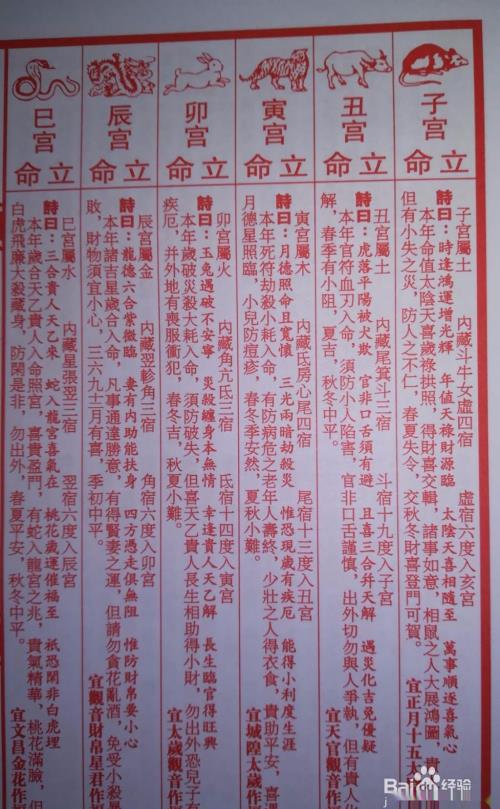 子宮
立命
子宮屬土 內藏斗牛女虛四宿 虛宿六度入亥宮
詩曰：時逢鴻運增光輝 年值天祿財源臨 太陰天喜相隨至 萬事順逐喜氣心
本年命值太陰天喜歲祿拱照，得財喜交輯，諸事如意，相鼠之人大展鴻圖，貴
但有小失之災，防人之不仁，春夏失令，交秋冬財喜登門可賀。
宜正月十五
丑宮
立命
丑宮屬土 內藏尾箕斗三宿 斗宿十九度入子宮
詩曰：虎落平陽被犬欺 官非口舌須有避 且喜三合并天解 遇災化吉免優疑
本年官符血刃入命，須防小人陷害，官非口舌謹慎，出外切勿與人爭執，但有貴人
解，春季有小阻，夏吉，秋冬中平。
宜天官觀音作
寅宮
立命
寅宮屬木 內藏氐房心尾四宿 尾宿十三度入丑宮
詩曰：月德照命且寬懷 三光兩暗劫殺災 惟恐現歲有疾厄 能得小利度生涯
本年死符劫殺小耗入命，有防病危之老年人壽終，少壯之人得衣食，貴助平安，喜遇
月德星照臨，小兒防痘疹，春冬季安然，夏秋小難。
宜城隍太歲作
卯宮
立命
卯宮屬火 內藏角亢氐三宿 氐宿十四度入寅宮
詩曰：玉兔遇破不安寧 災殺纏身本無情 幸逢貴人天乙解 長生臨官得旺興
本年歲破災殺大耗入命，須防破失，但喜天乙貴人長生相助得小財，勿出外恐兒子有
疾厄，并外地有喪服衝犯，春冬吉，秋夏小難。
宜太歲觀音作
辰宮
立命
辰宮屬金 內藏翌軫角三宿 角宿六度入卯宮
詩曰：龍德六合紫微臨 妻有內助能扶身 四方憑走俱無阻 惟防財帛要小心
本年諸吉星歲合入命，凡事通達勝意，有得賢妻之運，但請勿貪花亂酒，免受小殺暴
敗，財物須宜小心，三六九十二月有喜，季初中平。
宜觀音財帛星君作
巳宮
立命
巳宮屬水 內藏星張翌三宿 翌宿六度入辰宮
詩曰：三合貴人天乙來 蛇入龍宮喜氣在 桃花歲運催福至 祇恐鬧非白虎埋
本年歲合天乙貴人入命照宮，喜貴盈門，有蛇入龍宮之兆，貴氣精華，桃花滿臉，但
白虎飛廉大殺藏身，防鬧是非，勿出外，春夏平安，秋冬中平。
宜文昌金花作
Bai 百度经验
j